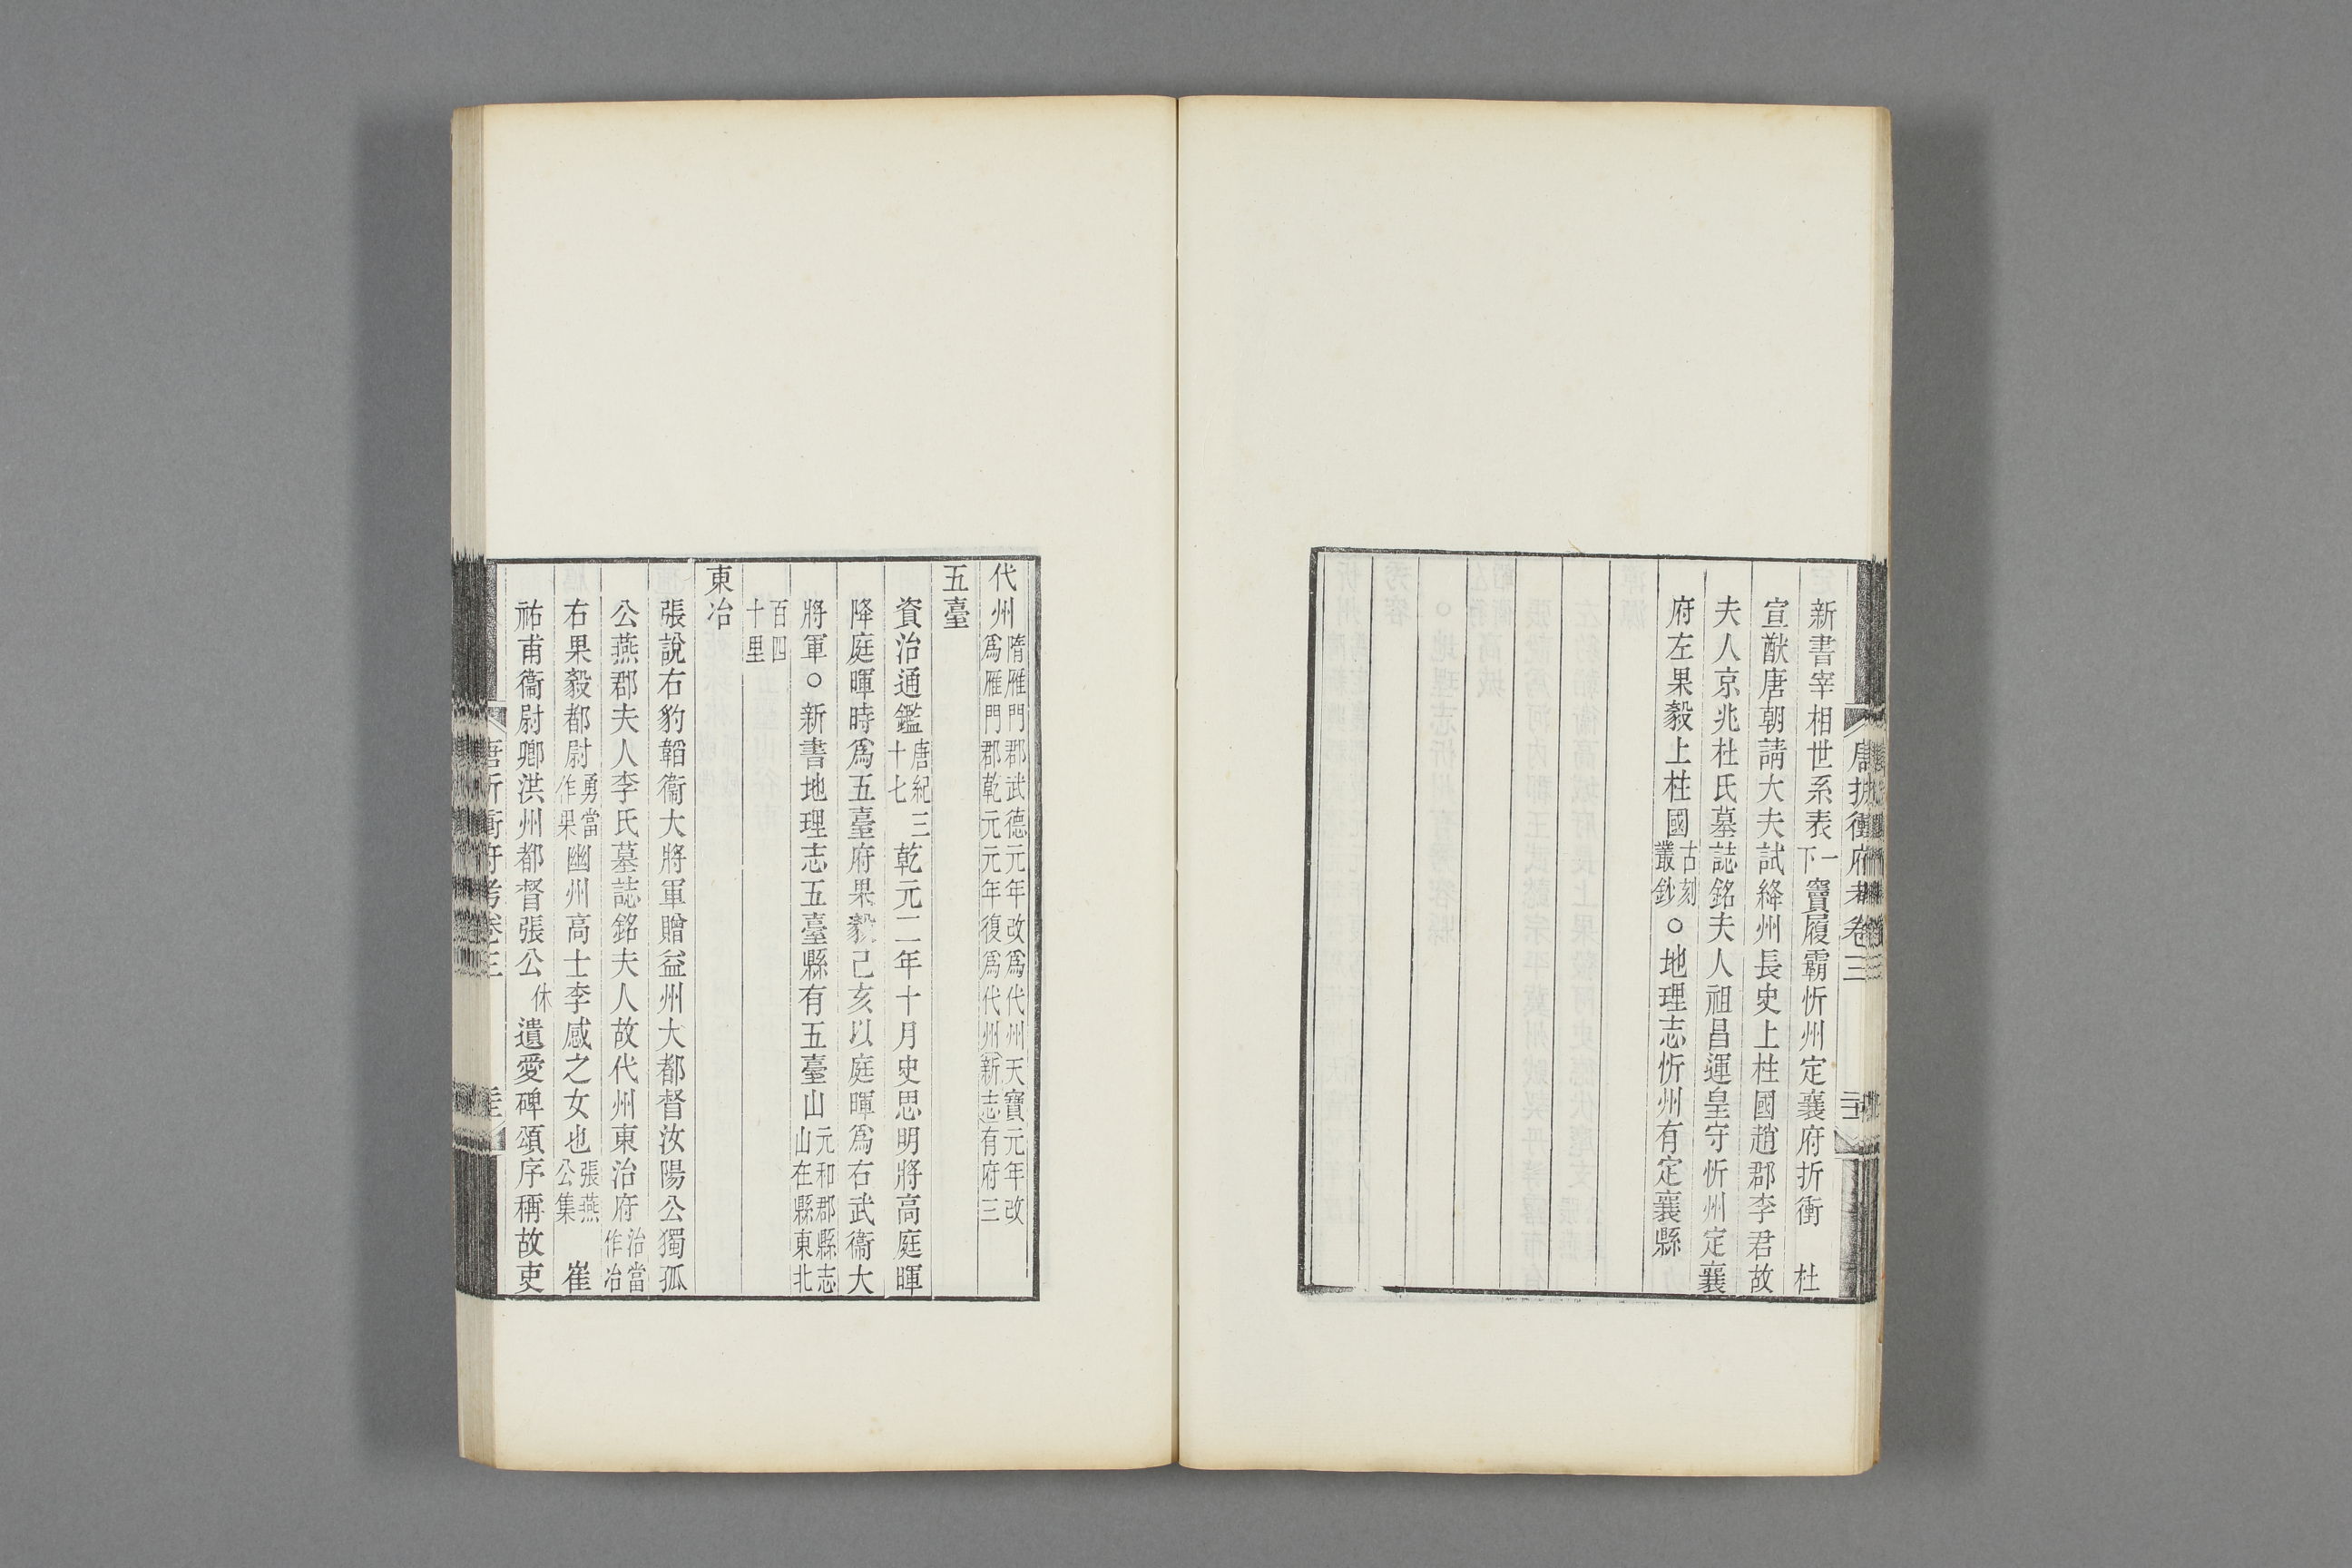 新書宰相世系表一下竇履霸忻州定襄府折衝　杜
宣猷唐朝請大夫試絳州長史上柱國趙郡李君故
夫人京兆杜氏墓誌銘夫人祖昌運皇守忻州定襄
府左果毅上柱國古刻叢鈔○地理志忻州有定襄縣
代州隋雁門郡武德元年改爲代州天寶元年改爲雁門郡乾元元年復爲代州新志有府三
五臺
資治通鑑唐紀三十七乾元二年十月史思明將高庭暉
降庭暉時爲五臺府果毅己亥以庭暉爲右武衞大
將軍○新書地理志五臺縣有五臺山元和郡縣志山在縣東北
百四十里
東冶
張說右豹韜衞大將軍贈益州大都督汝陽公獨孤
公燕郡夫人李氏墓誌銘夫人故代州東治府治當作冶
右果毅都尉勇當作果幽州高士李感之女也張燕公集　崔
祐甫衞尉卿洪州都督張公休遺愛碑頌序稱故吏
唐折衝府考卷三